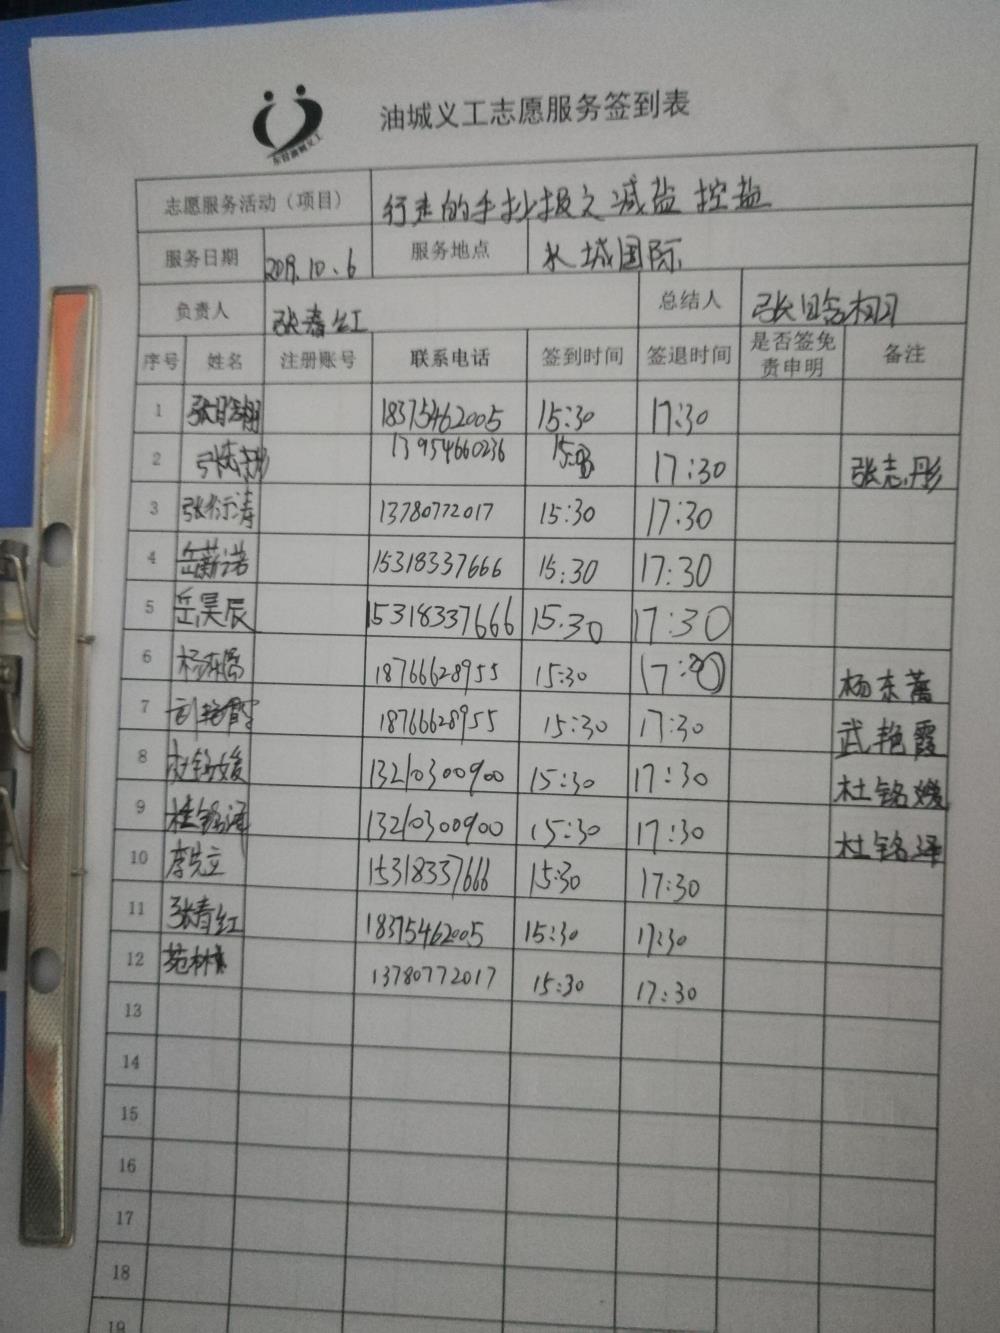 油城义工志愿服务签到表
志愿服务活动（项目） 行走的手抄报之减盐控盐
服务日期 2019.10.6 服务地点 水城国际
负责人 张春红 总结人 张晗栩
序号 姓名 注册账号 联系电话 签到时间 签退时间 是否签免责申明 备注
1 张晗栩 18375462005 15:30 17:30
2 张志彤 13954660236 17:30 张志彤
3 张衍涛 13780772017 15:30 17:30
4 岳薪诺 15318337666 15:30 17:30
5 岳昊辰 15318337666 15:30 17:30
6 18766628955 15:30 17:30 杨东蕾
7 武艳霞 18766628955 15:30 17:30 武艳霞
8 杜铭媛 13210300900 15:30 17:30 杜铭媛
9 杜铭泽 13210300900 15:30 17:30 杜铭泽
10 李先立 15318337666 15:30 17:30
11 张春红 18375462005 15:30 17:30
12 苑林林 13780772017 15:30 17:30
13
14
15
16
17
18
19